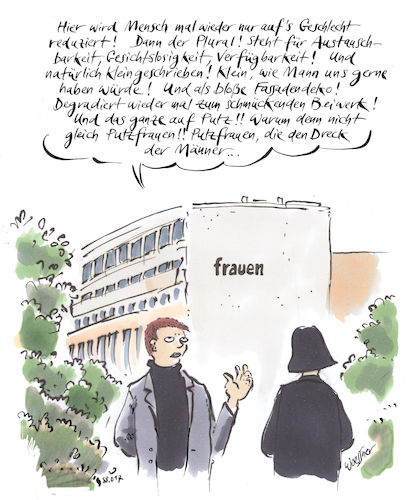 Hier wird Mensch mal wieder nur auf's Geschlecht
reduziert! Dann der Plural! Steht für Austausch-
barkeit, Gesichtslosigkeit, Verfügbarkeit! Und
natürlich kleingeschrieben! Klein, wie Mann uns gerne
haben würde! Und als bloße Fassadendeko!
Degradiert wieder mal zum schmückenden Beiwerk!
Und das ganze auf Putz!! Warum denn nicht
gleich Putzfrauen!! Putzfrauen, die den Dreck
der Männer...
frauen
Woessner